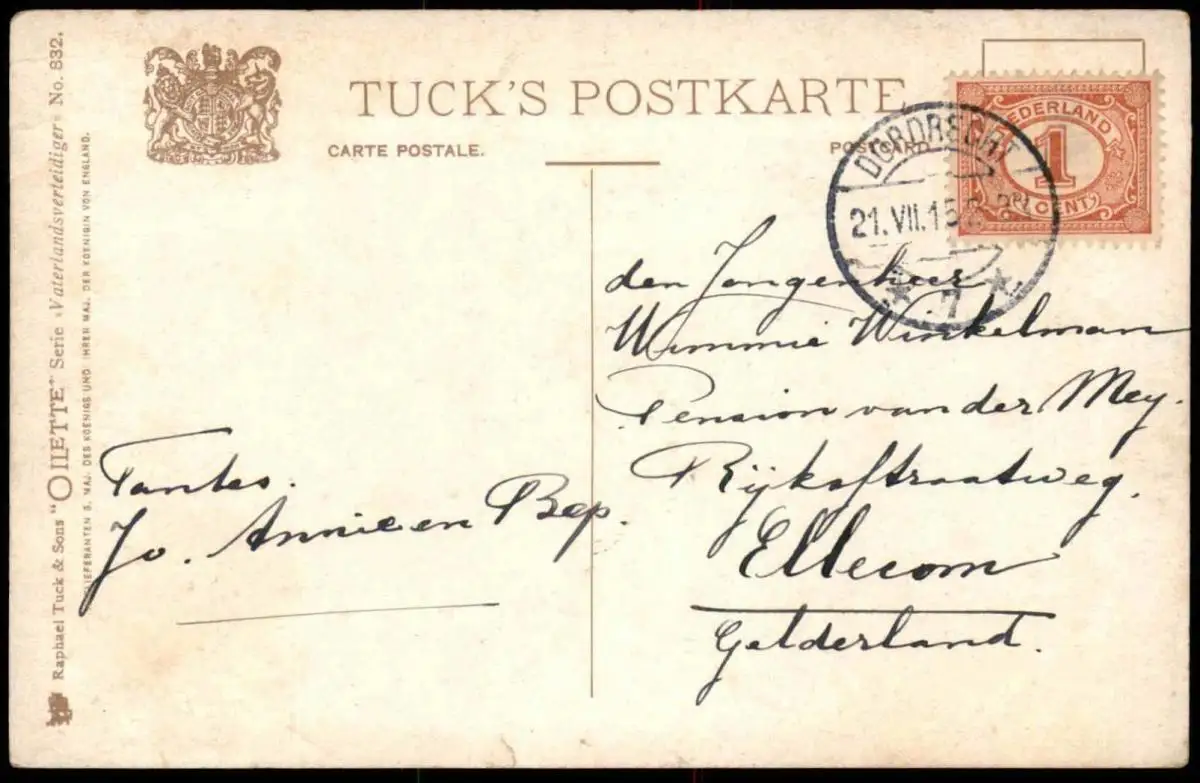 TUCK'S POSTKARTE
CARTE POSTALE.
POSTCARD
NEDERLAND
1
CENT
DORDRECHT
21.VII.15
7
den Jongenheer
Wimmie Winkelman
Pension van der Mey.
Rijksstraatweg.
Ellecom
Gelderland.
Tantes.
Jo. Annie en Bep.
Raphael Tuck & Sons "OILETTE" Serie »Vaterlandsverteidiger« No. 832.
LIEFERANTEN S. MAJ. DES KOENIGS UND IHRER MAJ. DER KOENIGIN VON ENGLAND.